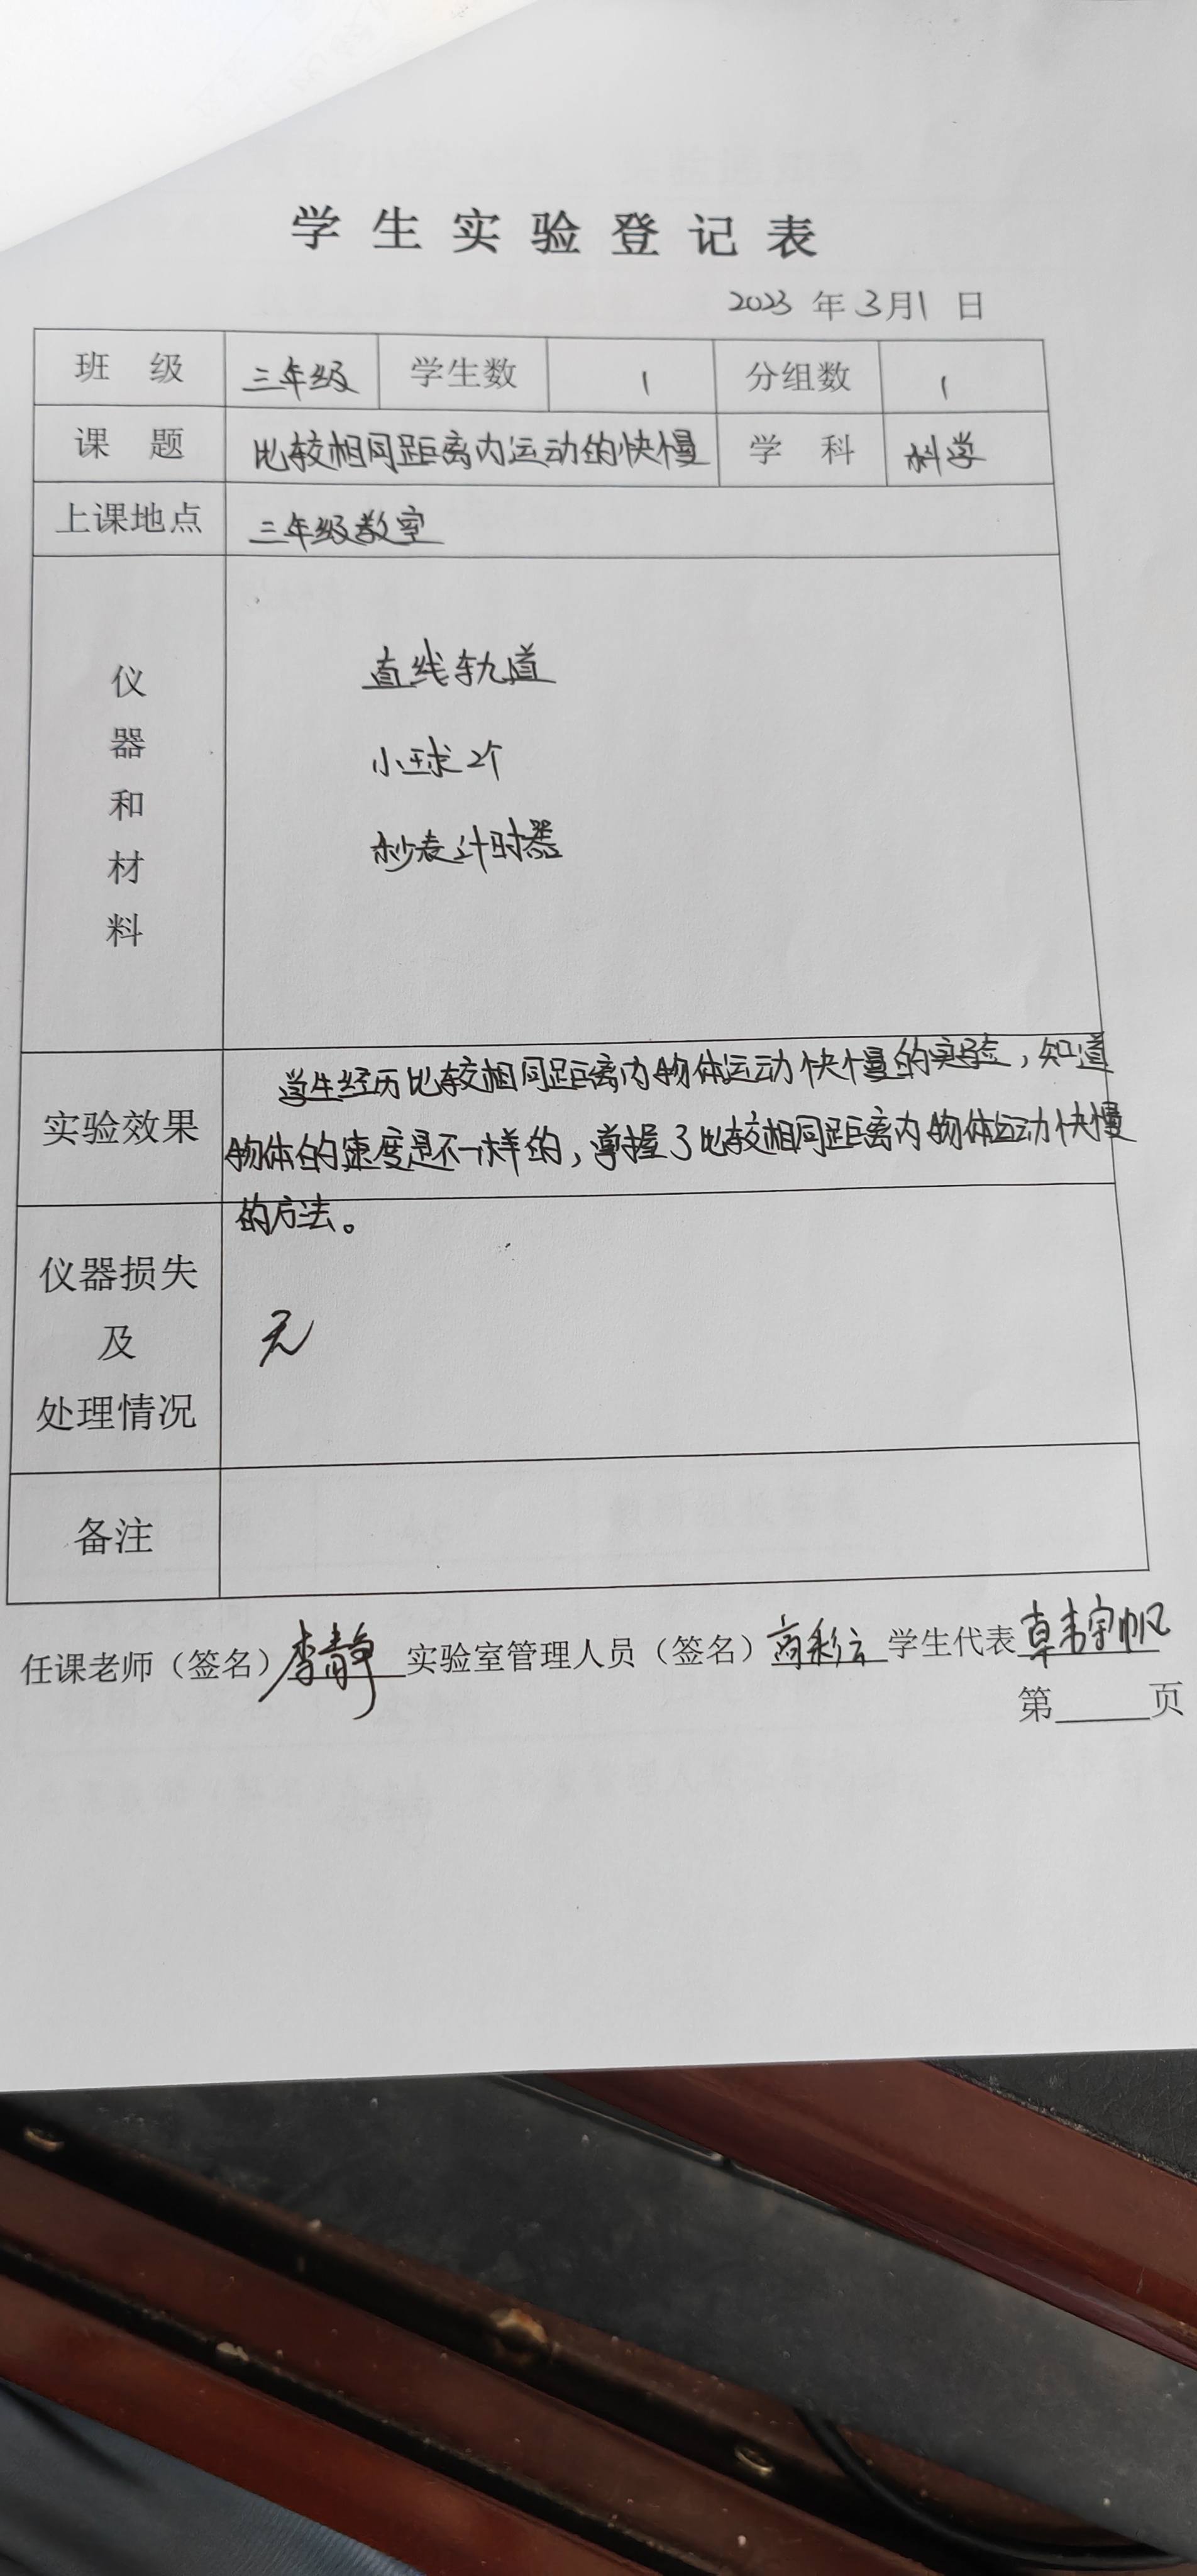 学生实验登记表
2023 年 3月1 日
班 级 三年级 学生数 1 分组数 1
课 题 比较相同距离内运动的快慢 学 科 科学
上课地点 三年级教室
仪器和材料
直线轨道
小球2个
秒表计时器
实验效果
学生经历比较相同距离内物体运动快慢的实验，知道
物体的速度是不一样的，掌握了比较相同距离内物体运动快慢
的方法。
仪器损失
及
处理情况
无
备注
任课老师（签名）李静 实验室管理人员（签名）商彩云 学生代表
第 页